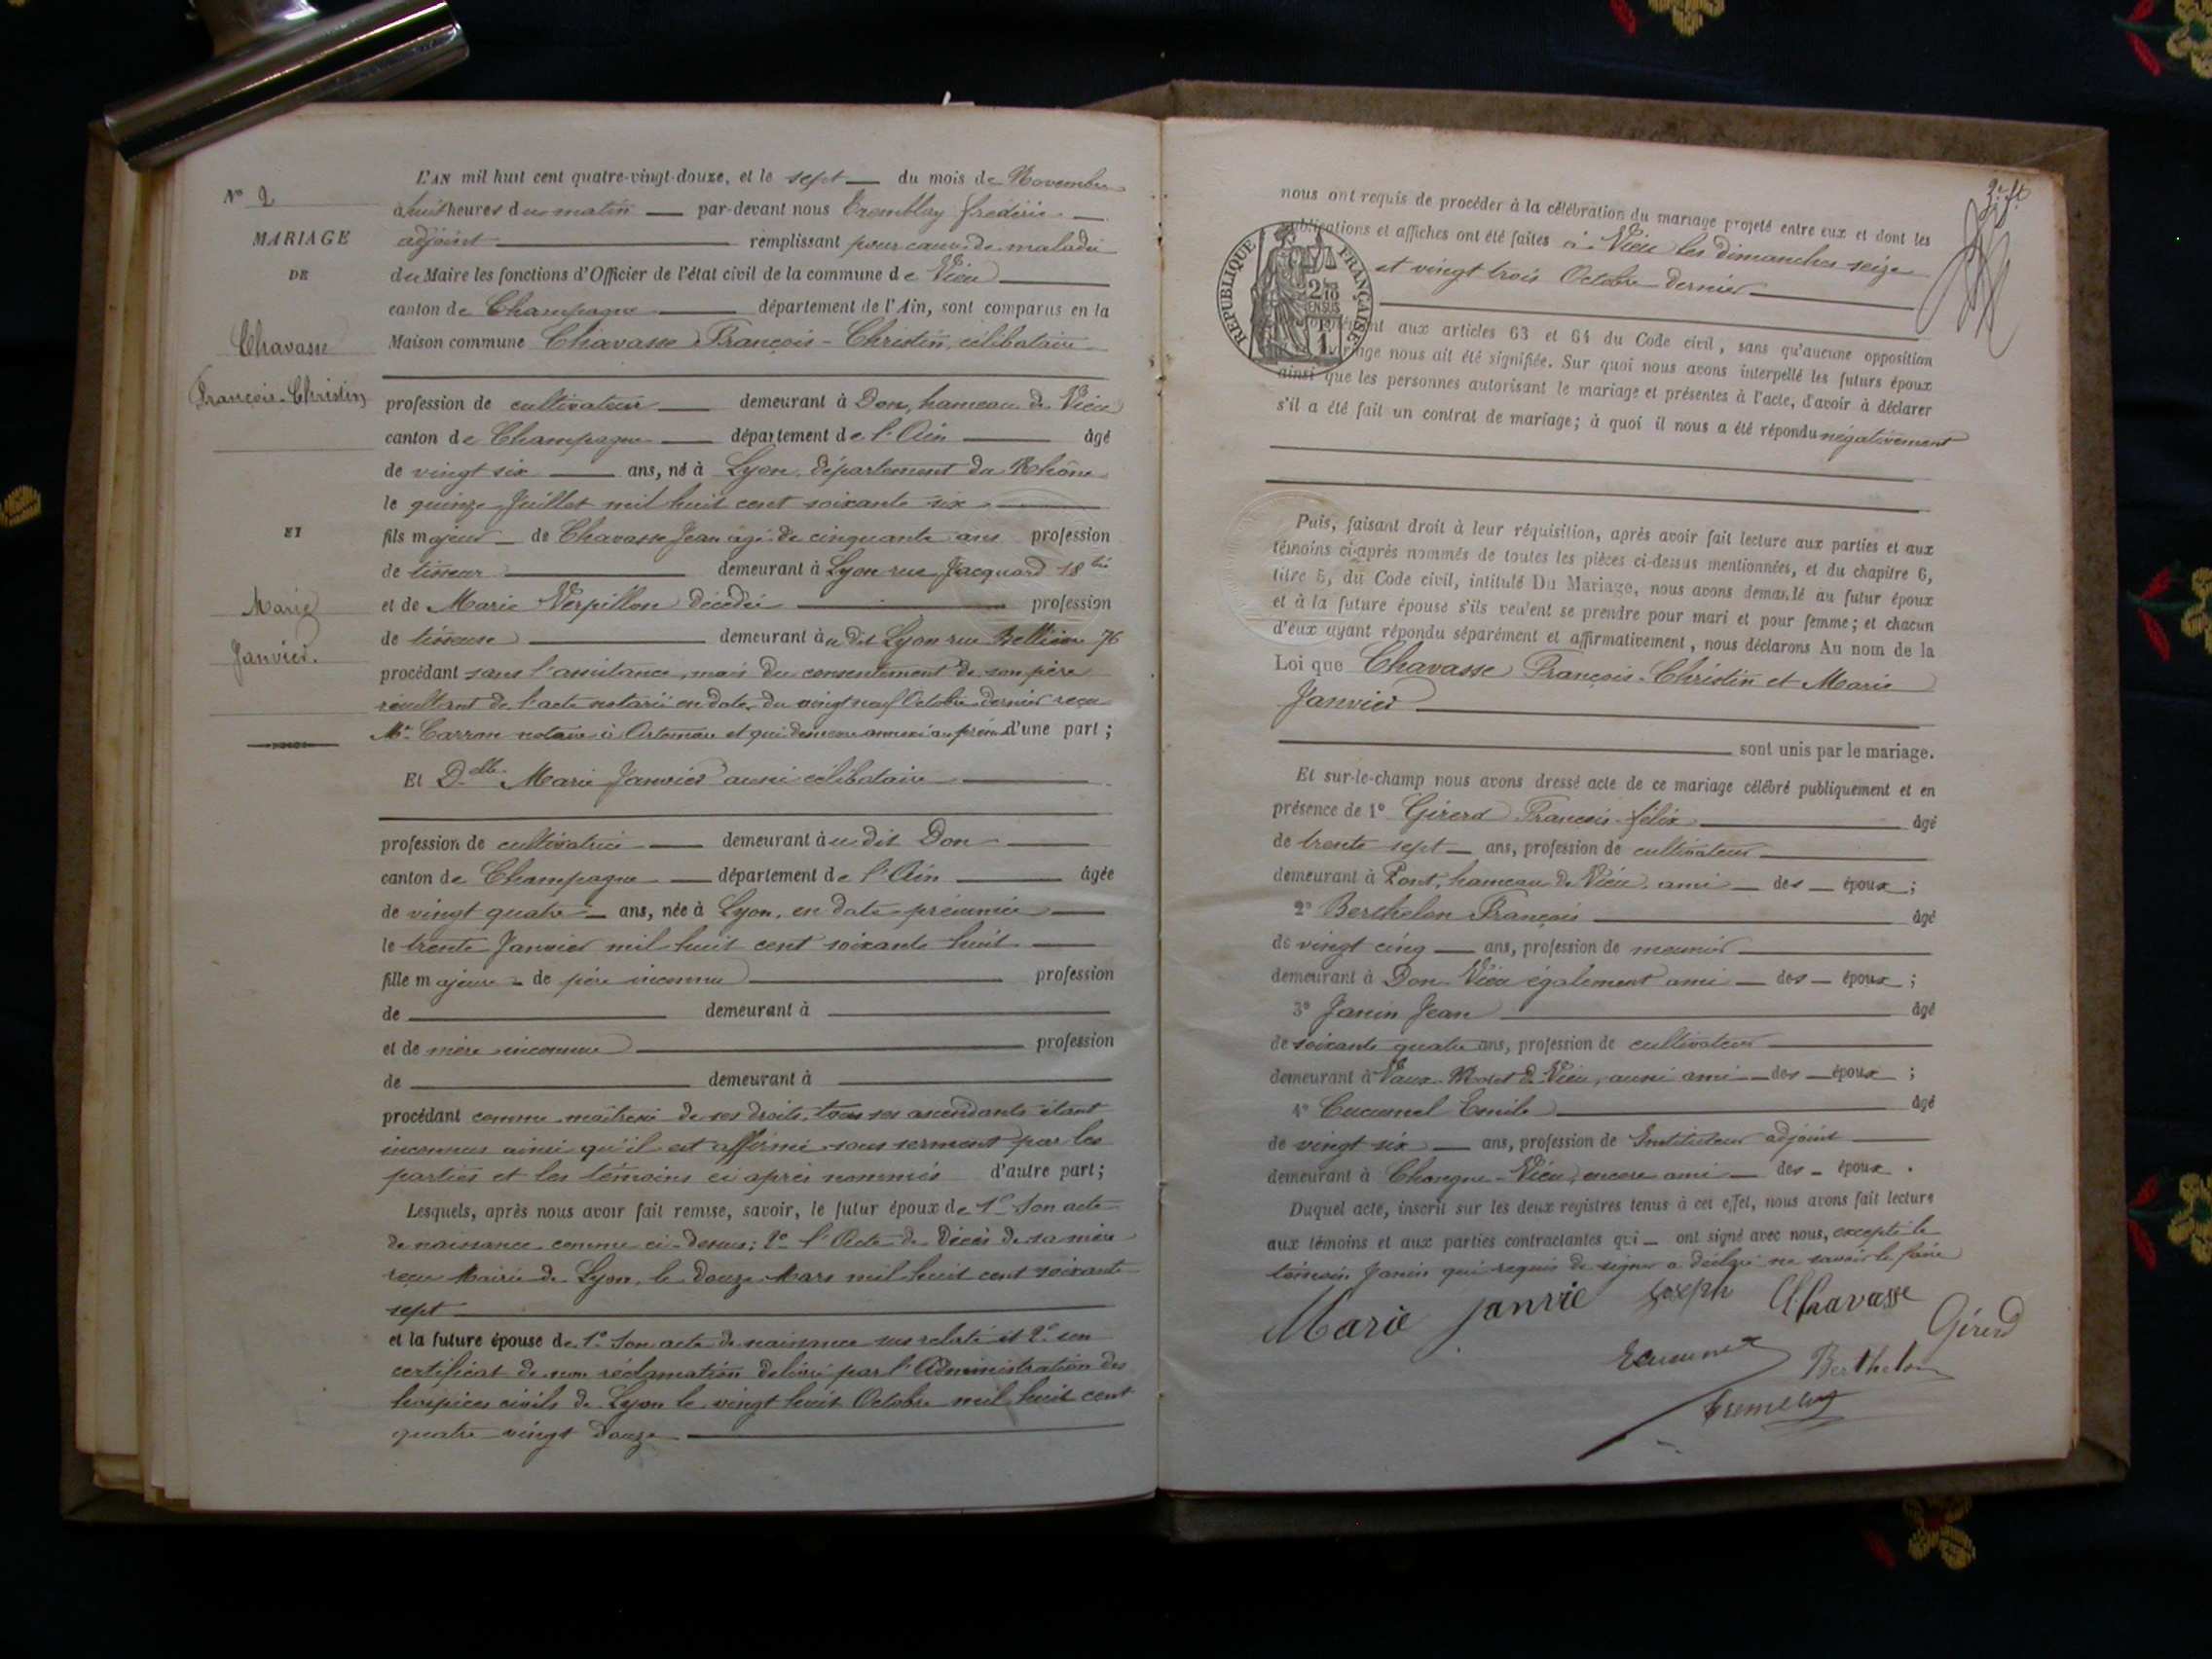 L'AN mil huit cent quatre-vingt-douze, et le sept du mois de Novembre
à huit heures du matin par-devant nous Tremblay frédéric
adjoint remplissant pour cause de maladie
du Maire les fonctions d'Officier de l'état civil de la commune de Vieu
canton de Champagne département de l'Ain, sont comparus en la
Maison commune Chavasse François-Christin, célibataire
profession de cultivateur demeurant à Don, hameau de Vieu
canton de Champagne département de l'Ain âgé
de vingt six ans, né à Lyon, département du Rhône
le quinze Juillet mil huit cent soixante six
fils majeur de Chavasse Jean âgé de cinquante ans profession
de tisseur demeurant à Lyon rue Jacquard 18 bis
et de Marie Verpillon décédée profession
de tisseuse demeurant au dit Lyon rue 76
procédant sans l'assistance, mais du consentement de son père
résultant de l'acte notarié en date du vingt neuf Octobre dernier reçu
Me Carron notaire à et qui demeure annexé au présent d'une part;
Et Delle Marie Janvier aussi célibataire
profession de cultivatrice demeurant au dit Don
canton de Champagne département de l'Ain âgée
de vingt quatre ans, née à Lyon, en date présumée
le trente Janvier mil huit cent soixante huit
fille majeure de père inconnu profession
de demeurant à
et de mère inconnue profession
de demeurant à
procédant comme maîtresse de ses droits, tous ses ascendants étant
inconnus ainsi qu'il est affirmé sous serment par les
parties et les témoins ci après nommés d'autre part;
Lesquels, après nous avoir fait remise, savoir, le futur époux de 1° Son acte
de naissance comme ci-dessus; 2° l'Acte de Décès de sa mère
reçu Mairie de Lyon, le douze Mars mil huit cent soixante
sept
et la future épouse de 1° Son acte de naissance sus relaté et 2° son
certificat de non réclamation délivré par l'Administration des
hospices civils de Lyon le vingt huit Octobre mil huit cent
quatre vingt douze
N° 2
MARIAGE
DE
Chavasse
François-Christin
ET
Marie
Janvier.
nous ont requis de procéder à la célébration du mariage projeté entre eux et dont les
publications et affiches ont été faites à Vieu les dimanches seize
et vingt trois Octobre dernier
REPUBLIQUE FRANÇAISE
2/10 EN SUS
aux articles 63 et 64 du Code civil, sans qu'aucune opposition
mariage nous ait été signifiée. Sur quoi nous avons interpellé les futurs époux
ainsi que les personnes autorisant le mariage et présentes à l'acte, d'avoir à déclarer
s'il a été fait un contrat de mariage; à quoi il nous a été répondu négativement
Puis, faisant droit à leur réquisition, après avoir fait lecture aux parties et aux
témoins ci-après nommés de toutes les pièces ci-dessus mentionnées, et du chapitre 6,
titre 5, du Code civil, intitulé Du Mariage, nous avons demandé au futur époux
et à la future épouse s'ils veulent se prendre pour mari et pour femme; et chacun
d'eux ayant répondu séparément et affirmativement, nous déclarons Au nom de la
Loi que Chavasse François-Christin et Marie
Janvier
sont unis par le mariage.
Et sur-le-champ nous avons dressé acte de ce mariage célébré publiquement et en
présence de 1° Girerd François-félix âgé
de trente sept ans, profession de cultivateur
demeurant à Pont, hameau de Vieu, ami des époux;
2° Berthelon François âgé
de vingt cinq ans, profession de meunier
demeurant à Don-Vieu également ami des époux;
3° Janin Jean âgé
de soixante quatre ans, profession de cultivateur
demeurant à Vaux-Moret de Vieu, aussi ami des époux;
4° Cucumel Emile âgé
de vingt six ans, profession de Instituteur adjoint
demeurant à Chongne-Vieu, encore ami des époux.
Duquel acte, inscrit sur les deux registres tenus à cet effet, nous avons fait lecture
aux témoins et aux parties contractantes qui ont signé avec nous, excepté le
témoin Janin qui requis de signer a déclaré ne savoir le faire
Marie janvie joseph Chavasse
Girerd
Berthelon